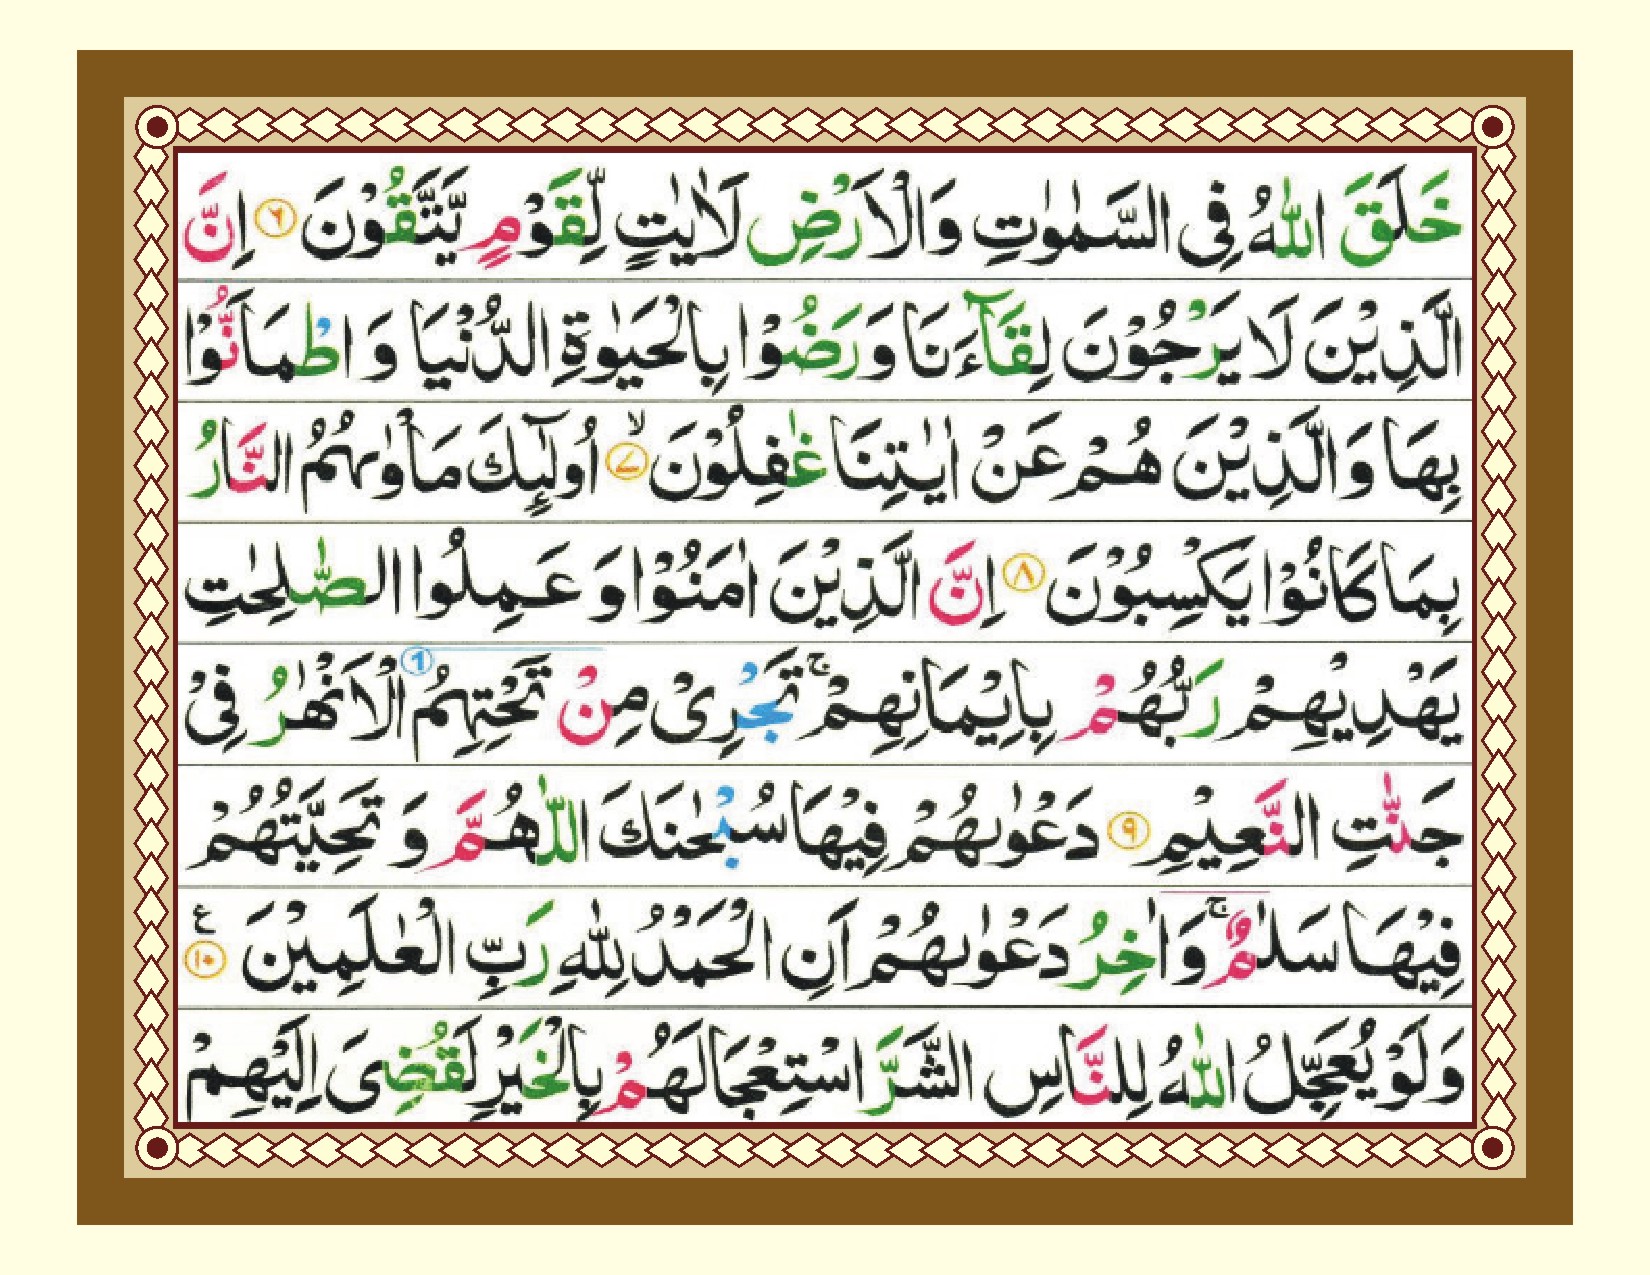 خَلَقَ اللّٰهُ فِى السَّمٰوٰتِ وَالْاَرْضِ لَاٰيٰتٍ لِّقَوْمٍ يَّتَّقُوْنَ ﴿۶﴾ اِنَّ
الَّذِيْنَ لَا يَرْجُوْنَ لِقَآءَنَا وَرَضُوْا بِالْحَيٰوةِ الدُّنْيَا وَ اطْمَاَنُّوْا
بِهَا وَالَّذِيْنَ هُمْ عَنْ اٰيٰتِنَا غٰفِلُوْنَ ۙ﴿۷﴾ اُولٰٓئِكَ مَاْوٰىهُمُ النَّارُ
بِمَا كَانُوْا يَكْسِبُوْنَ ﴿۸﴾ اِنَّ الَّذِيْنَ اٰمَنُوْا وَ عَمِلُوا الصّٰلِحٰتِ
يَهْدِيْهِمْ رَبُّهُمْ بِاِيْمَانِهِمْ ۚ تَجْرِىْ مِنْ تَحْتِهِمُ 1 الْاَنْهٰرُ فِىْ
جَنّٰتِ النَّعِيْمِ ﴿۹﴾ دَعْوٰىهُمْ فِيْهَا سُبْحٰنَكَ اللّٰهُمَّ وَ تَحِيَّتُهُمْ
فِيْهَا سَلٰمٌ ۚ وَاٰخِرُ دَعْوٰىهُمْ اَنِ الْحَمْدُ لِلّٰهِ رَبِّ الْعٰلَمِيْنَ ﴿۱۰﴾ ع
وَلَوْ يُعَجِّلُ اللّٰهُ لِلنَّاسِ الشَّرَّ اسْتِعْجَالَهُمْ بِالْخَيْرِ لَقُضِىَ اِلَيْهِمْ